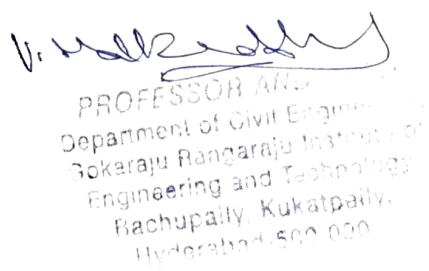 V.
PROFESSOR AND
Department of Civil Engine
Gokaraju Rangaraju Institute of
Engineering and Technology
Bachupally, Kukatpally,
Hyderabad-500 090